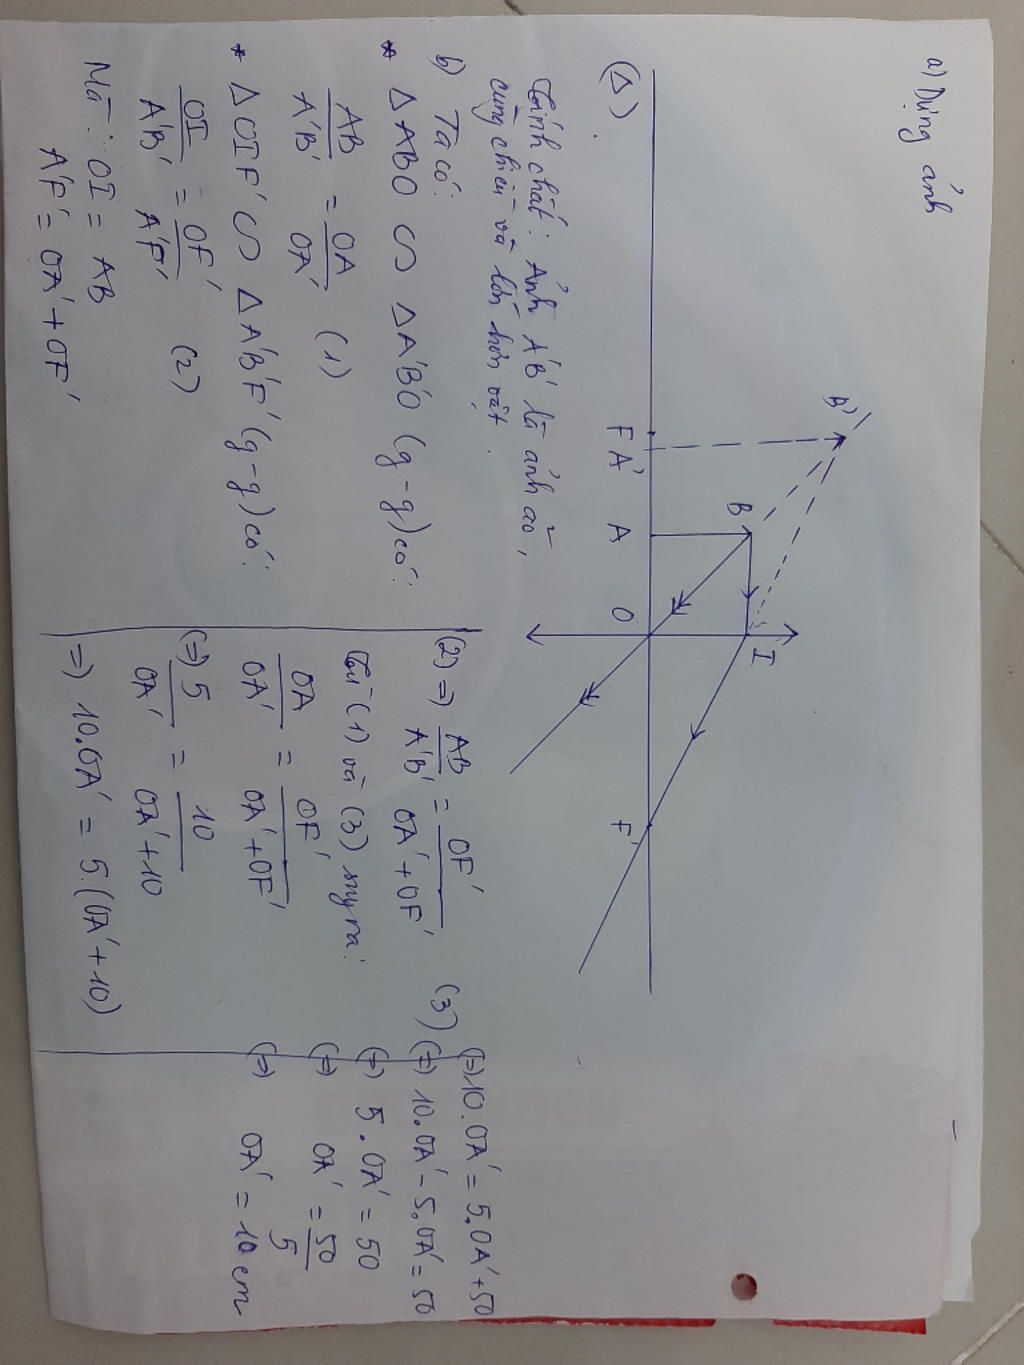 a) Dựng ảnh
B'
B
I
F A' A O F'
(Δ)
Tính chất: Ảnh A'B' là ảnh ảo,
cùng chiều và lớn hơn vật.
b) Ta có:
* ΔABO ∽ ΔA'B'O (g-g) có:
AB/A'B' = OA/OA' (1)
* ΔOIF' ∽ ΔA'B'F' (g-g) có:
OI/A'B' = OF'/A'F' (2)
Mà: OI = AB
A'F' = OA' + OF'
(2) => AB/A'B' = OF'/OA'+OF' (3)
Từ (1) và (3) suy ra:
OA/OA' = OF'/OA'+OF'
(=) 5/OA' = 10/OA'+10
=> 10.OA' = 5.(OA'+10)
(=) 10.OA' = 5.OA' + 50
(=) 10.OA' - 5.OA' = 50
(=) 5.OA' = 50
(=) OA' = 50/5
(=) OA' = 10 cm